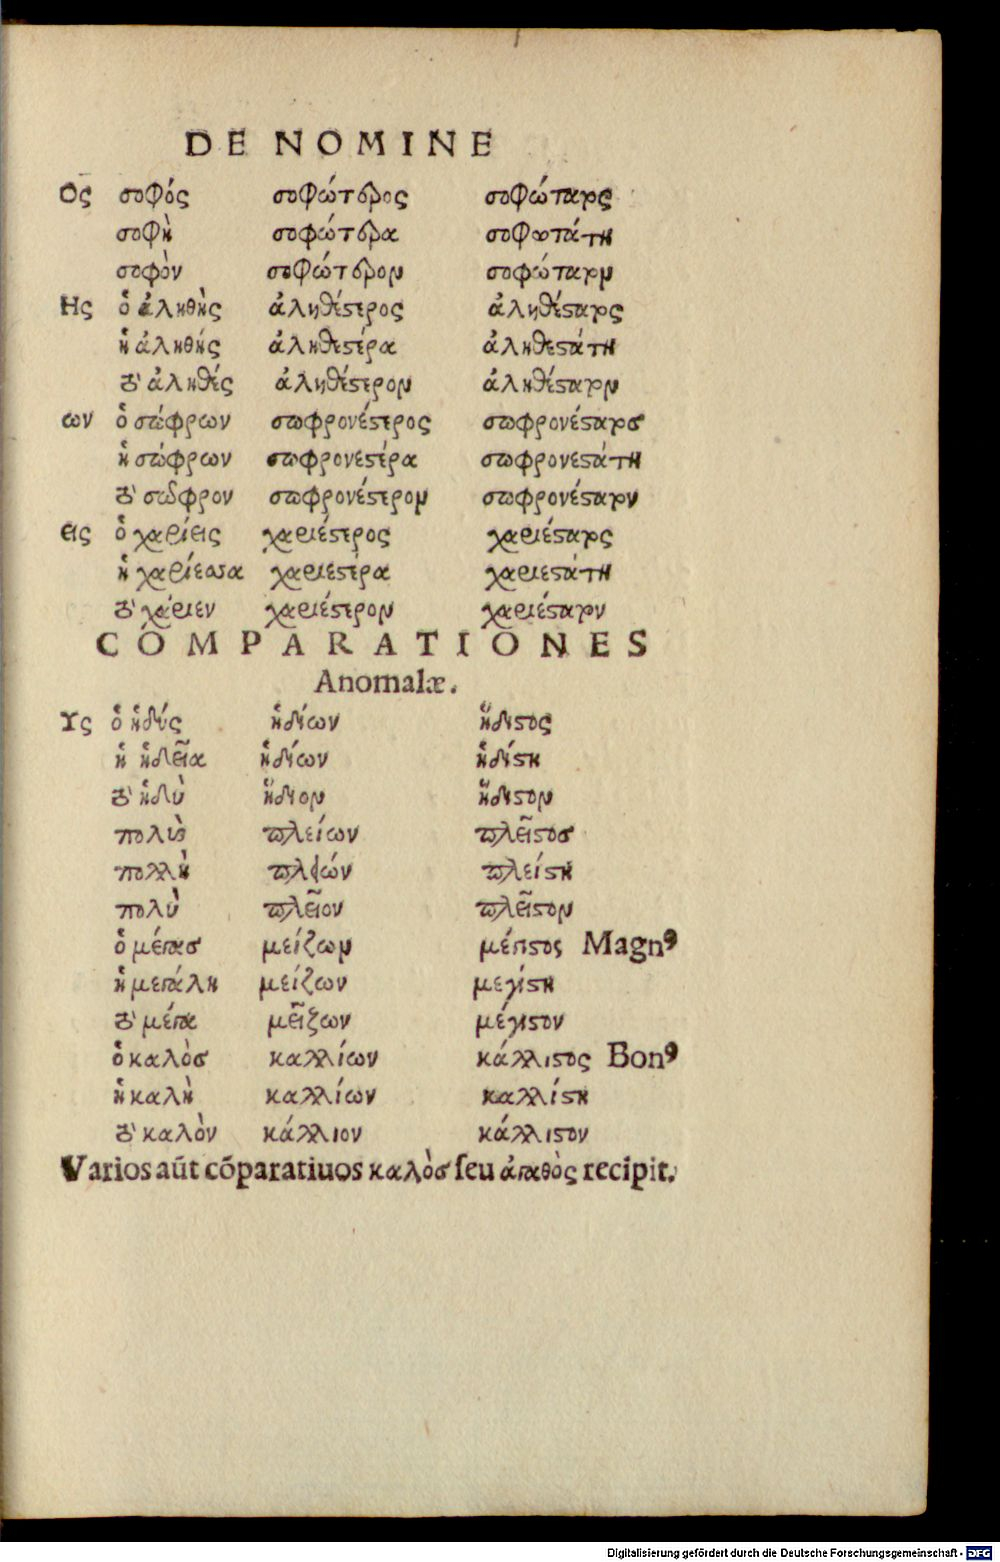 DE NOMINE
Ος σοφός σοφώτερος σοφώτατος
σοφὴ σοφώτερα σοφωτάτη
σοφὸν σοφώτερον σοφώτατον
Ης ὁ ἀληθὴς ἀληθέστερος ἀληθέστατος
ἡ ἀληθής ἀληθεστέρα ἀληθεστάτη
τὸ ἀληθές ἀληθέστερον ἀληθέστατον
ων ὁ σώφρων σωφρονέστερος σωφρονέστατος
ἡ σώφρων σωφρονεστέρα σωφρονεστάτη
τὸ σῶφρον σωφρονέστερον σωφρονέστατον
εις ὁ χαρίεις χαριέστερος χαριέστατος
ἡ χαρίεσσα χαριεστέρα χαριεστάτη
τὸ χάριεν χαριέστερον χαριέστατον
COMPARATIONES
Anomalæ.
Υς ὁ ἡδύς ἡδίων ἥδιστος
ἡ ἡδεῖα ἡδίων ἡδίστη
τὸ ἡδὺ ἥδιον ἥδιστον
πολὺς πλείων πλεῖστος
πολλὴ πλειών πλείστη
πολὺ πλεῖον πλεῖστον
ὁ μέγας μείζων μέγιστος Magnꝰ
ἡ μεγάλη μείζων μεγίστη
τὸ μέγα μεῖζων μέγιστον
ὁ καλὸς καλλίων κάλλιστος Bonꝰ
ἡ καλὴ καλλίων καλλίστη
τὸ καλὸν κάλλιον κάλλιστον
Varios aūt cōparatiuos καλὸς ſeu ἀγαθὸς recipit.
Digitalisierung gefördert durch die Deutsche Forschungsgemeinschaft - DFG